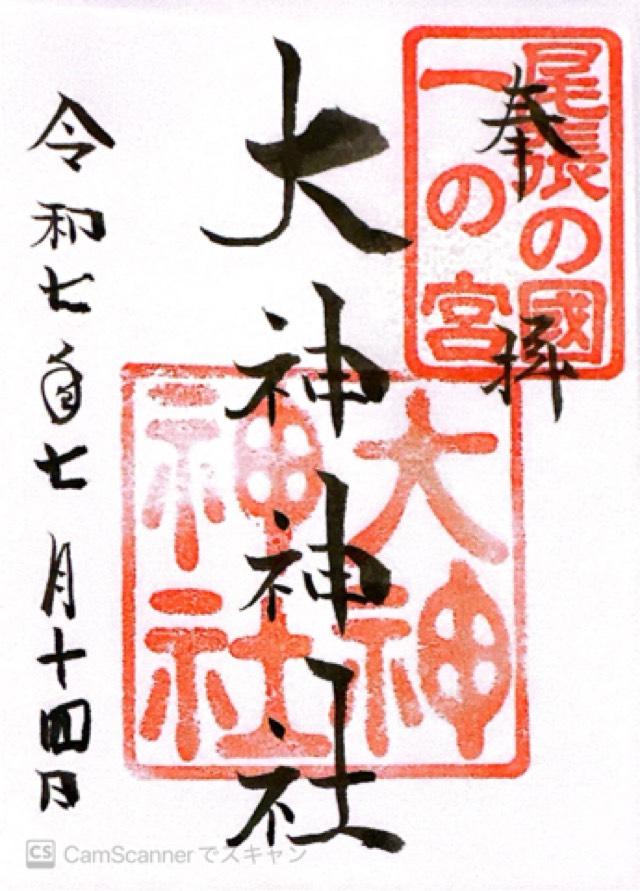 奉拝
尾張の國
一の宮
大神神社
大神
神社
令和七年七月十四日
CS CamScannerでスキャン